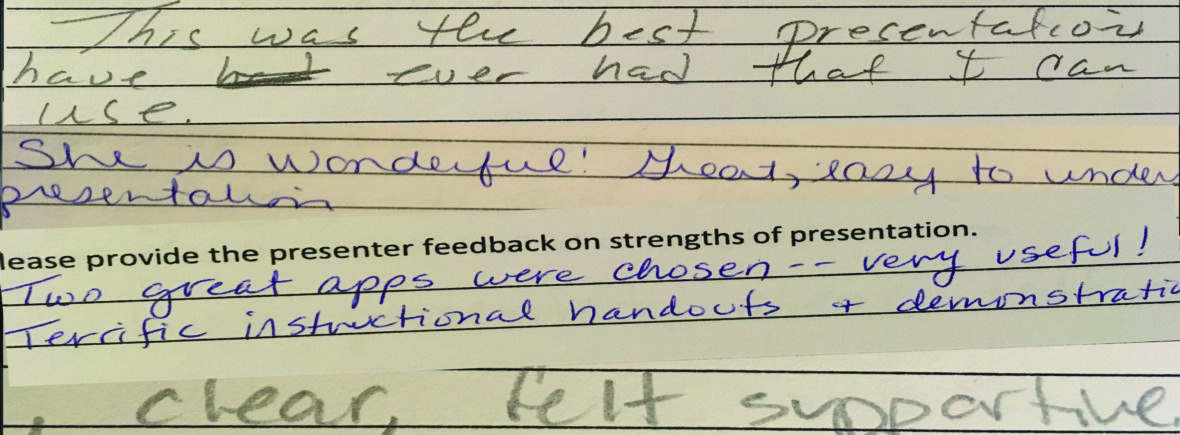 This was the best presentation
have ever had that I can
use.
She is wonderful! Great, easy to unders
presentation
lease provide the presenter feedback on strengths of presentation.
Two great apps were chosen -- very useful!
Terrific instructional handouts + demonstratio
, clear, felt supportive